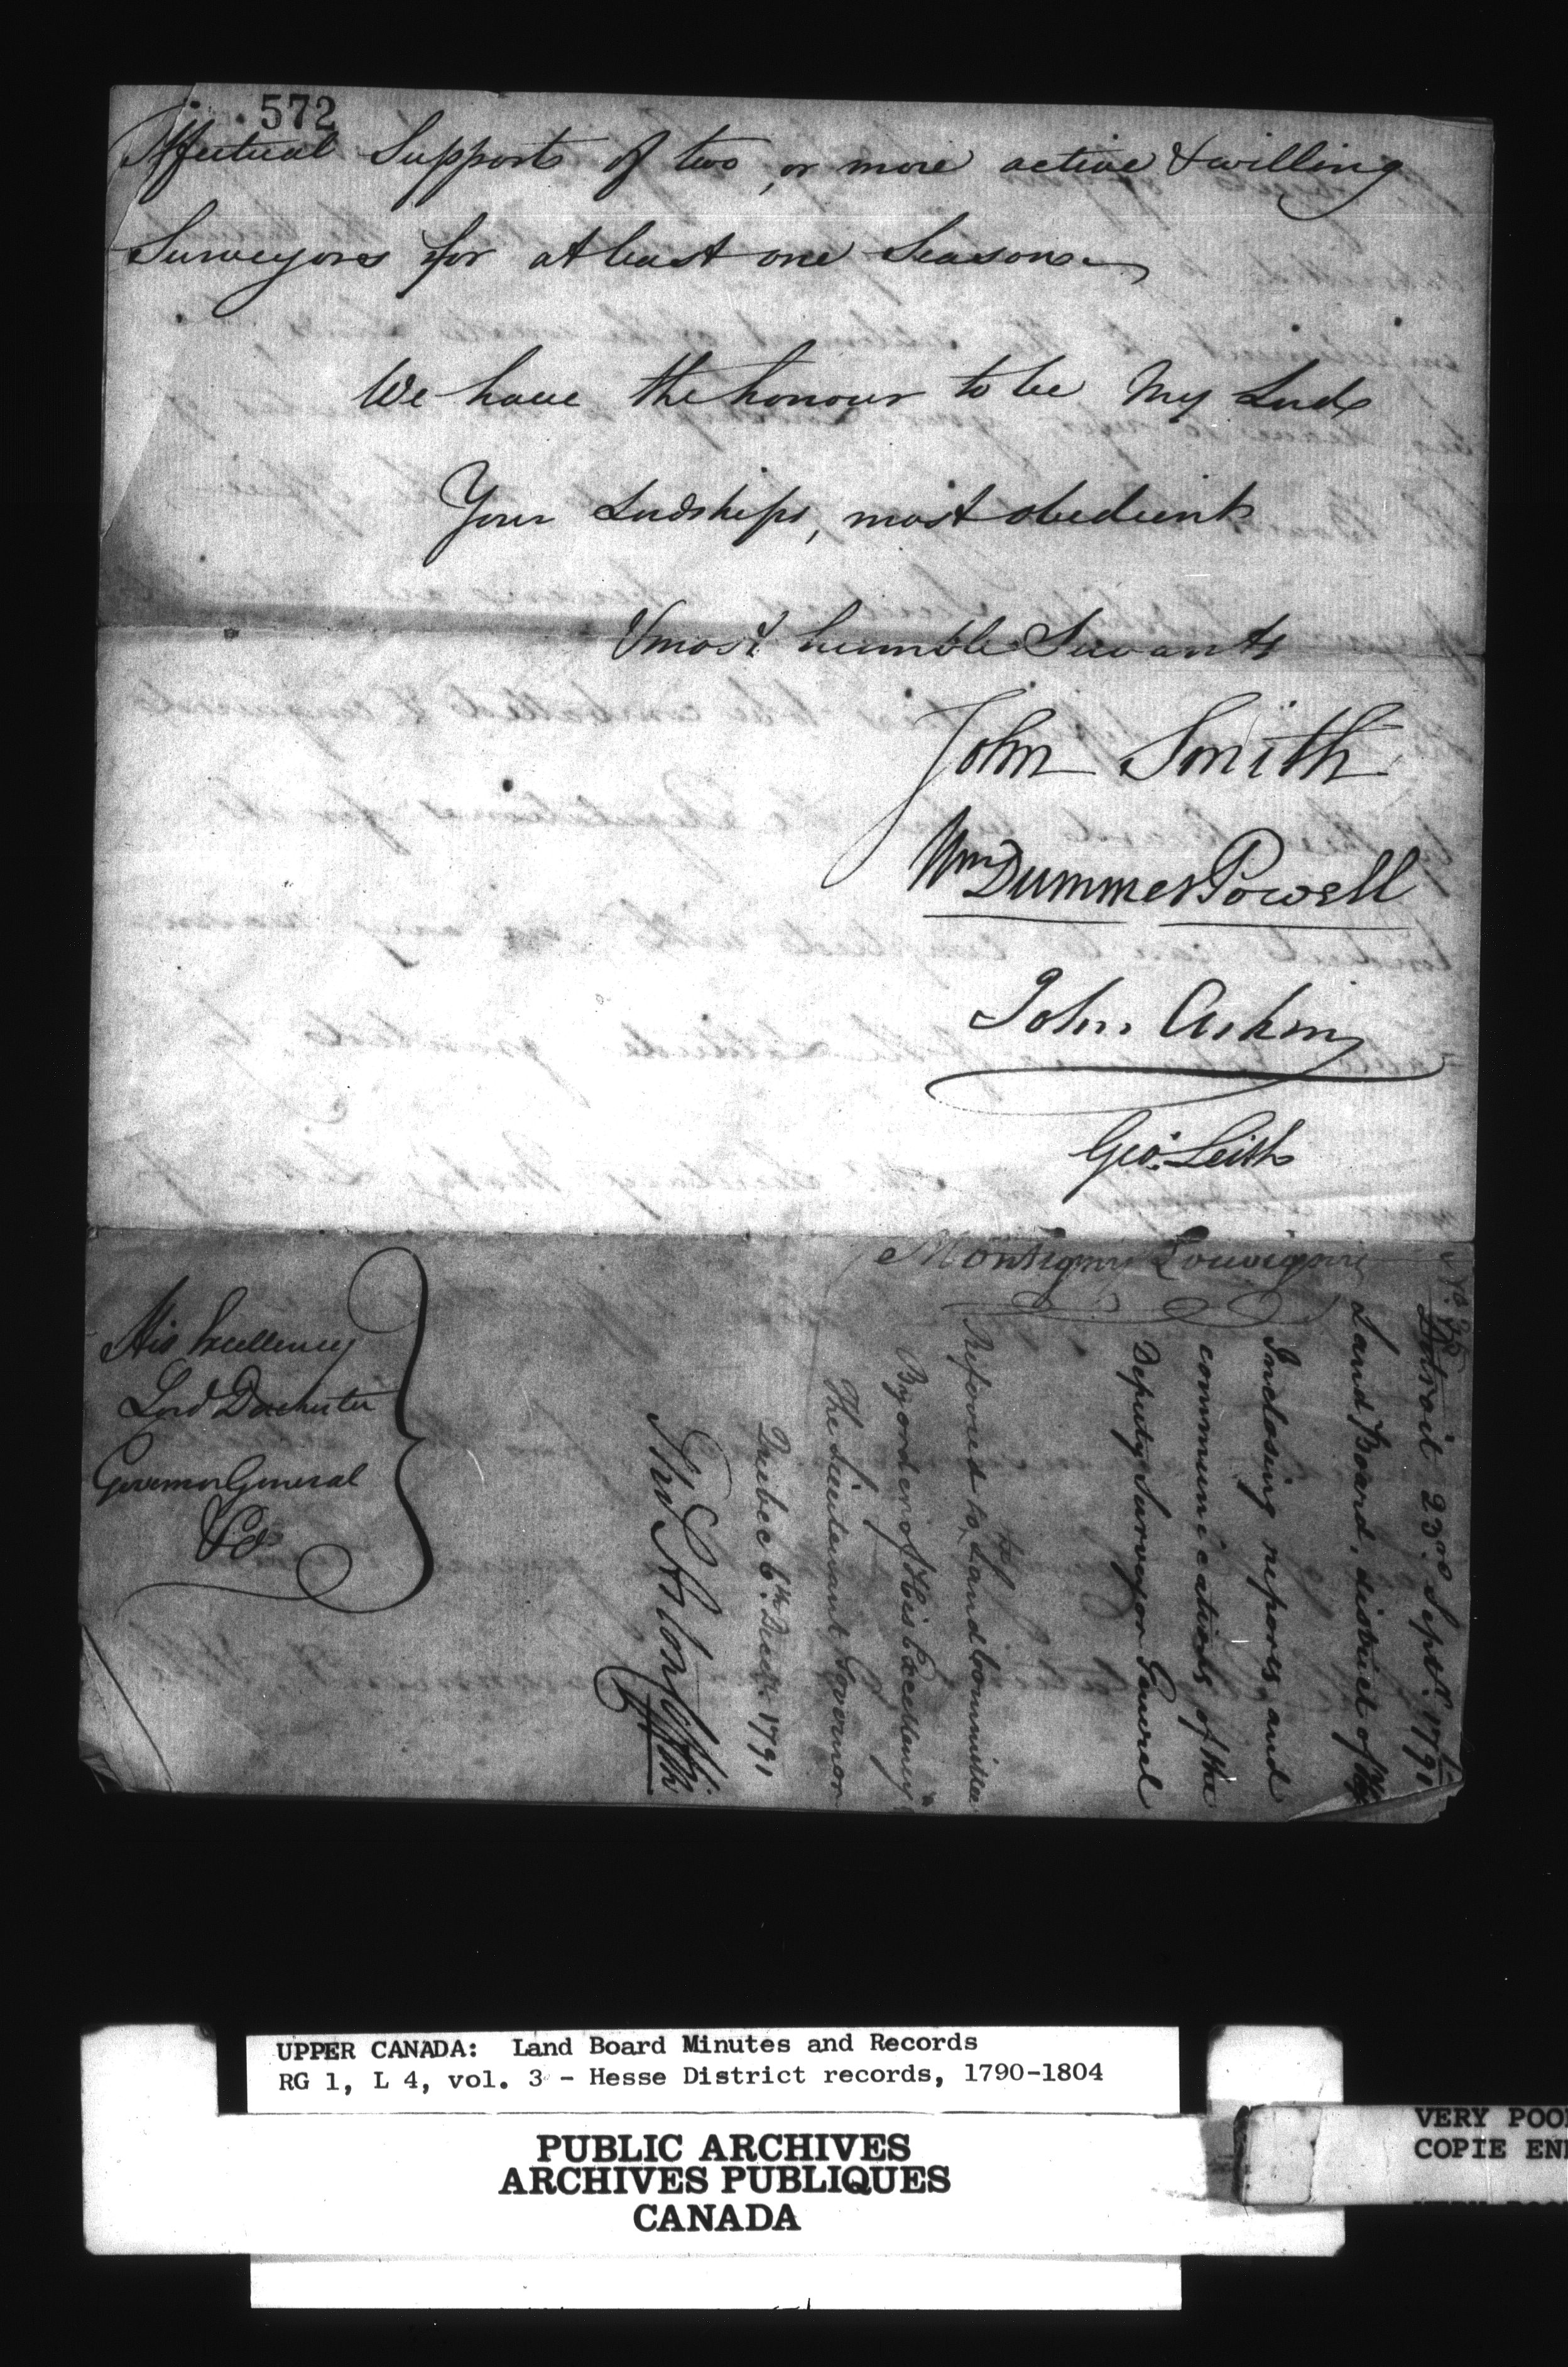 572
Effectual Support of two, or more active & willing
Surveyors for at least one Season
We have the honour to be My Lord
Your Lordships, most obedient
& most humble Servants
John Smith
Wm Dummer Powell
John Askin
Geo: Leith
Montigny Louvigny
His Excellency
Lord Dorchester
Governor General
&ca
Detroit 23rd Septr. 1791
Land Board, district of
Inclosing reports, and
communications of the
Deputy Surveyor General
Referred to the Land Committee
By order of His Excellency
The Lieutenant Governor
Quebec 6th Decr. 1791
UPPER CANADA: Land Board Minutes and Records
RG 1, L 4, vol. 3 - Hesse District records, 1790-1804
PUBLIC ARCHIVES
ARCHIVES PUBLIQUES
CANADA
VERY POO
COPIE EN